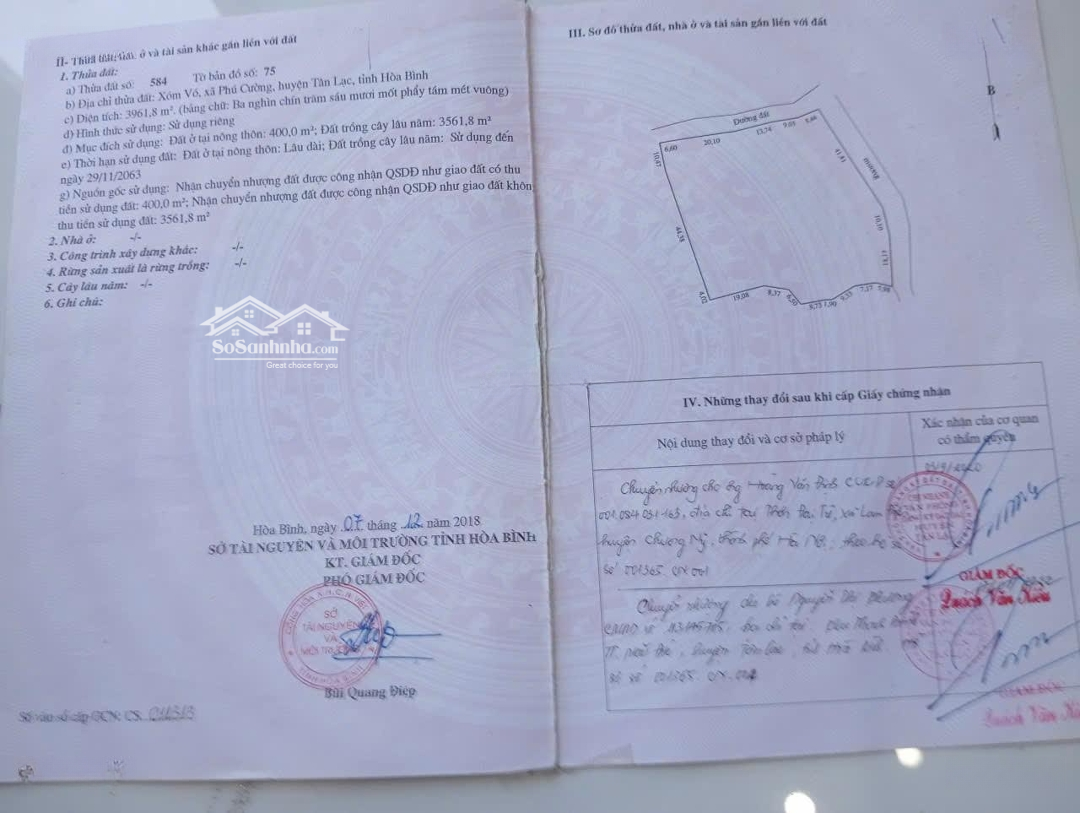 II- Thửa đất, nhà ở và tài sản khác gắn liền với đất
1. Thửa đất:
a) Thửa đất số: 584 Tờ bản đồ số: 75
b) Địa chỉ thửa đất: Xóm Vó, xã Phú Cường, huyện Tân Lạc, tỉnh Hòa Bình
c) Diện tích: 3961,8 m². (bằng chữ: Ba nghìn chín trăm sáu mươi mốt phẩy tám mét vuông)
d) Hình thức sử dụng: Sử dụng riêng
đ) Mục đích sử dụng: Đất ở tại nông thôn: 400,0 m²; Đất trồng cây lâu năm: 3561,8 m²
e) Thời hạn sử dụng đất: Đất ở tại nông thôn: Lâu dài; Đất trồng cây lâu năm: Sử dụng đến
ngày 29/11/2063
g) Nguồn gốc sử dụng: Nhận chuyển nhượng đất được công nhận QSDĐ như giao đất có thu
tiền sử dụng đất: 400,0 m²; Nhận chuyển nhượng đất được công nhận QSDĐ như giao đất khôn
thu tiền sử dụng đất: 3561,8 m²
2. Nhà ở: -/-
3. Công trình xây dựng khác: -/-
4. Rừng sản xuất là rừng trồng: -/-
5. Cây lâu năm: -/-
6. Ghi chú:
SoSanhnha.com
Great choice for you
Hòa Bình, ngày 07 tháng 12 năm 2018
SỞ TÀI NGUYÊN VÀ MÔI TRƯỜNG TỈNH HÒA BÌNH
KT. GIÁM ĐỐC
PHÓ GIÁM ĐỐC
SỞ
TÀI NGUYÊN
VÀ
MÔI TRƯỜNG
Bùi Quang Điệp
Số vào sổ cấp GCN: CS
III. Sơ đồ thửa đất, nhà ở và tài sản gắn liền với đất
B
Đường đất
6,60 20,10 13,74 9,05
10,87
41,81
Đường
10,10
44,31
4,02 19,08 8,37 6,50 8,75 1,90 9,35 7,17
IV. Những thay đổi sau khi cấp Giấy chứng nhận
Nội dung thay đổi và cơ sở pháp lý
Xác nhận của cơ quan
có thẩm quyền
Chuyển nhượng cho ông Hoàng Văn
huyện Chương Mỹ, thành phố Hà Nội, theo hồ sơ
số 001365.CN.001
GIÁM ĐỐC
Quách Văn
Chuyển nhượng cho bà Nguyễn Thị
huyện Tân Lạc
số 001365.CN.002
GIÁM ĐỐC
Quách Văn